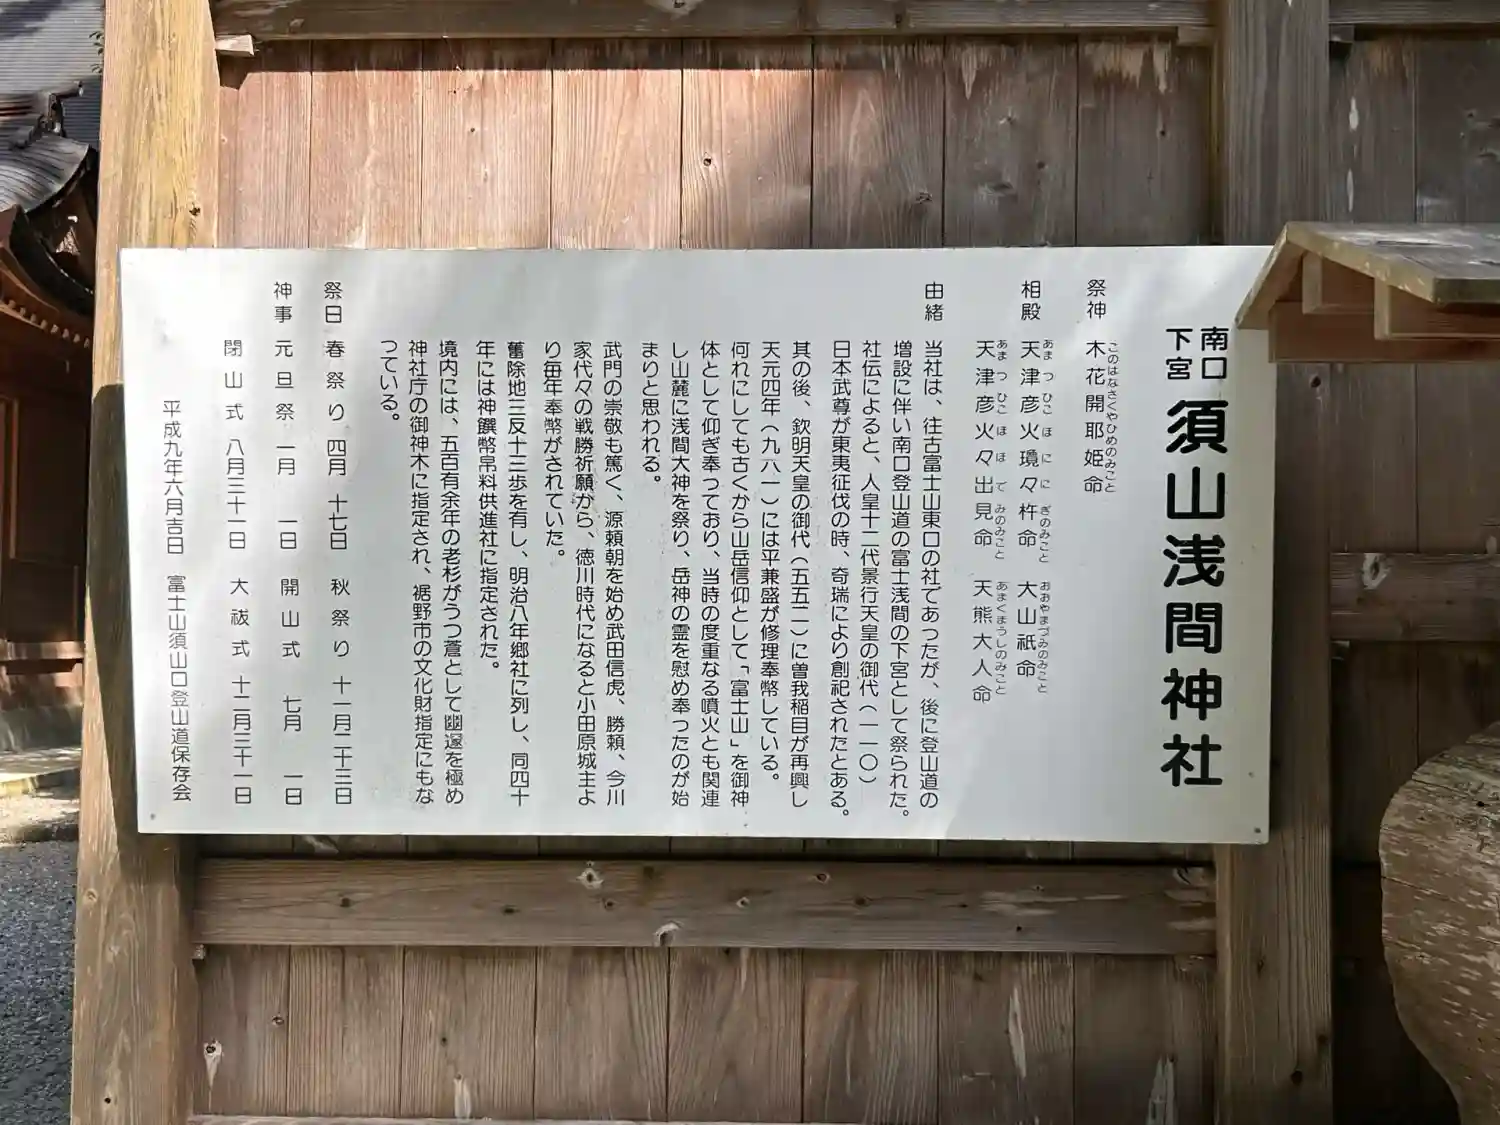 南口
下宮
須山浅間神社
祭神 木花開耶姫命
このはなさくやひめのみこと
相殿 天津彦火瓊々杵命 大山祇命
あまつひこほににぎのみこと おおやまづみのみこと
天津彦火々出見命 天熊大人命
あまつひこほほでみのみこと あまくまうしのみこと
由緒
当社は、往古富士山東口の社であったが、後に登山道の
増設に伴い南口登山道の富士浅間の下宮として祭られた。
社伝によると、人皇十二代景行天皇の御代(一一〇)
日本武尊が東夷征伐の時、奇瑞により創祀されたとある。
其の後、欽明天皇の御代(五五二)に曽我稲目が再興し
天元四年(九八一)には平兼盛が修理奉幣している。
何れにしても古くから山岳信仰として「富士山」を御神
体として仰ぎ奉っており、当時の度重なる噴火とも関連
し山麓に浅間大神を祭り、岳神の霊を慰め奉ったのが始
まりと思われる。
武門の崇敬も篤く、源頼朝を始め武田信虎、勝頼、今川
家代々の戦勝祈願から、徳川時代になると小田原城主よ
り毎年奉幣がされていた。
旧除地三反十三歩を有し、明治八年郷社に列し、同四十
年には神饌幣帛料供進社に指定された。
境内には、五百有余年の老杉がうつ蒼として幽邃を極め
神社庁の御神木に指定され、裾野市の文化財指定にもな
っている。
祭日 春祭り 四月 十七日 秋祭り 十一月二十三日
神事 元旦祭 一月 一日 開山式 七月 一日
閉山式 八月三十一日 大祓式 十二月三十一日
平成九年六月吉日 富士山須山口登山道保存会